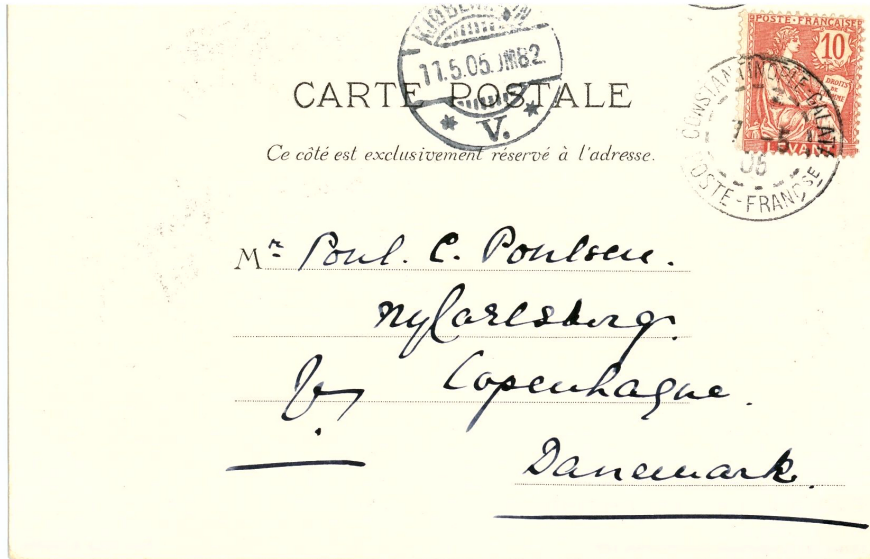 KJØBENHAVN
11.5.05. 8
V.
POSTE-FRANÇAISE
10
DROITS
DE
L'HOMME
LEVANT
CONSTANTINOPLE-GALATA
7 -5
05
POSTE-FRANÇSE
CARTE POSTALE
Ce côté est exclusivement réservé à l'adresse.
Mr Poul. C. Poulsen.
Ny Carlsberg.
Copenhague.
Danemark.